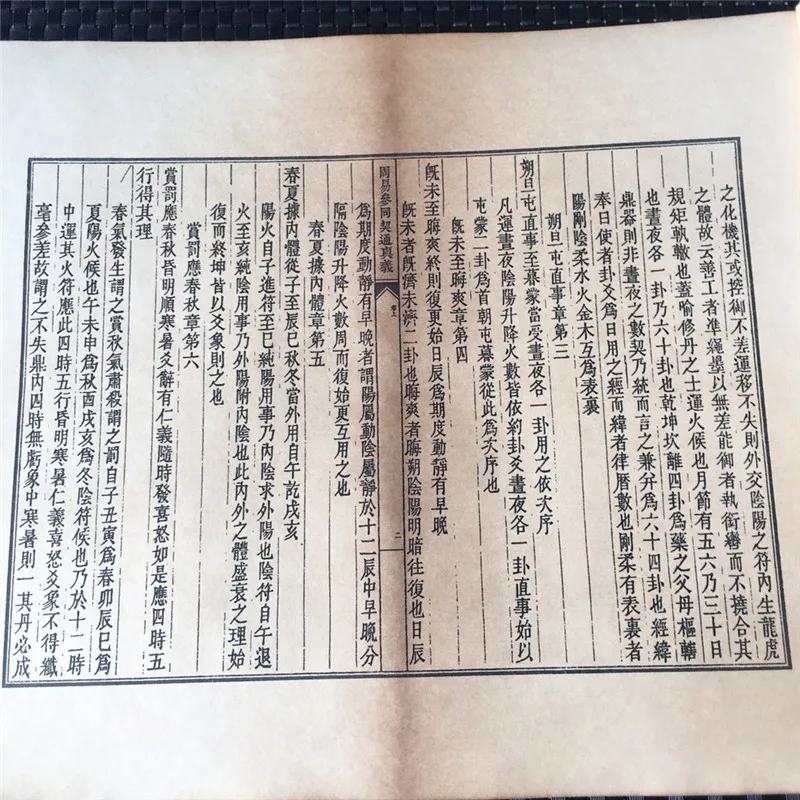 之化機其或控御不差運移不失則外交陰陽之符內生龍虎
之體故云善工者準繩墨以無差能御者執銜轡而不撓合其
規矩軌轍也蓋喻修丹之士運火候也月節有五六乃三十日
也晝夜各一卦乃六十卦也乾坤坎離四卦爲藥之父母樞轄
鼎器則非晝夜之數契乃統而言之兼并爲六十四卦也經緯
奉日使者卦爻爲日用之經而緯者律曆數也剛柔有表裏者
陽剛陰柔水火金木互爲表裏
朔旦屯直事章第三
朔旦屯直事至暮蒙當受晝夜各一卦用之依次序
凡運晝夜陰陽升降火數皆依約卦爻晝夜各一卦直事始以
屯蒙二卦爲首朝屯暮蒙從此爲次序也
旣未至晦爽章第四
旣未至晦爽終則復更始日辰爲期度動靜有早晚
旣未者旣濟未濟二卦也晦爽者晦朔陰陽明暗往復也日辰
周易參同契通真義
卷上
二
爲期度動靜有早晚者謂陽屬動陰屬靜於十二辰中早晚分
隔陰陽升降火數周而復始更互用之也
春夏據內體章第五
春夏據內體從子至辰巳秋冬當外用自午訖戌亥
陽火自子進符至巳純陽用事乃內陰求外陽也陰符自午退
火至亥純陰用事乃外陽附內陰也此內外之體盛衰之理始
復而終坤皆以爻象則之也
賞罰應春秋章第六
賞罰應春秋昏明順寒暑爻辭有仁義隨時發喜怒如是應四時五
行得其理
春氣發生謂之賞秋氣肅殺謂之罰自子丑寅爲春卯辰巳爲
夏陽火候也午未申爲秋酉戌亥爲冬陰符候也乃於十二時
中運其火符應此四時五行昏明寒暑仁義喜怒爻象不得纖
毫參差故謂之不失鼎內四時無虧象中寒暑則一其丹必成